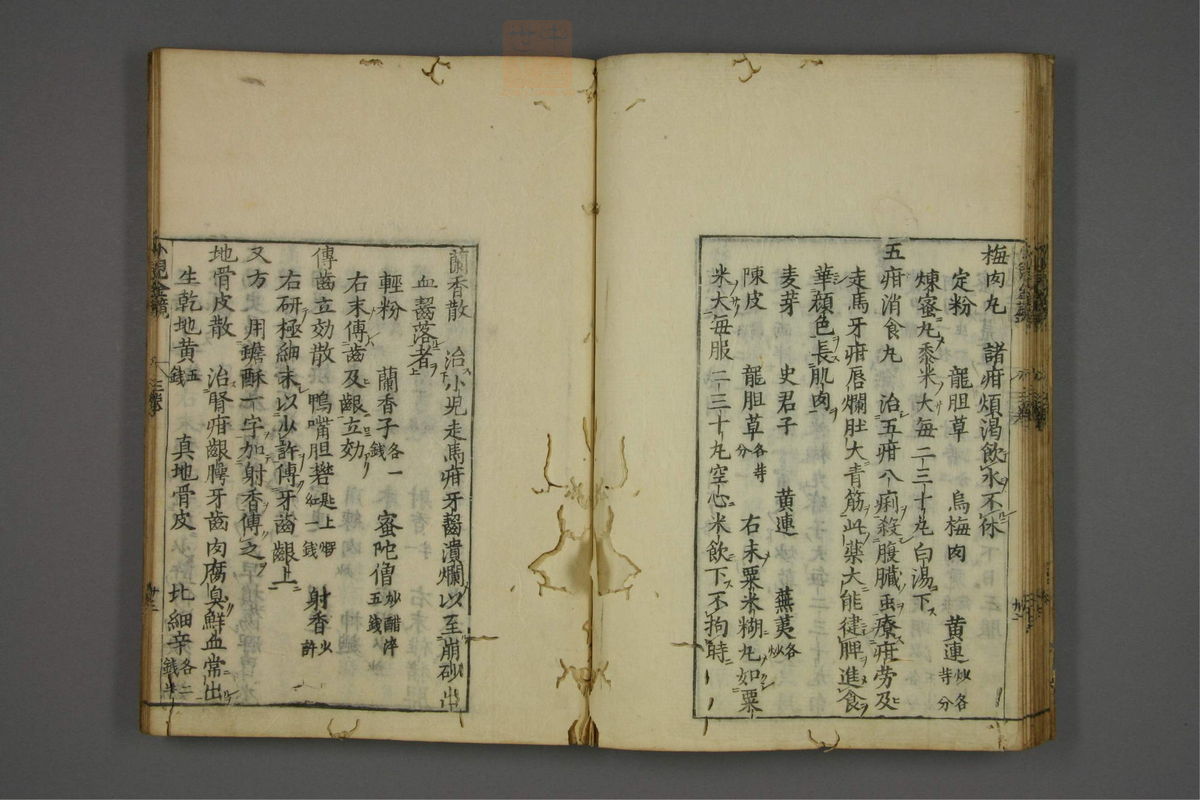 梅肉丸　諸疳煩渇飲水不休
定粉　龍胆草　烏梅肉　黄連炒各等分
煉蜜丸黍米大每二三十丸白湯下
五疳消食丸　治五疳八痢殺腹臓虫療疳労及
走馬牙疳唇爛肚大青筋此薬大能健脾進食
華顔色長肌肉
麦芽　史君子　黄連　蕪荑炒各
陳皮　龍胆草各等分　右末粟米糊丸如粟
米大每服二三十丸空心米飲下不拘時
蘭香散　治小児走馬疳牙齒潰爛以至崩砂出
血齒落者
輕粉　蘭香子各一錢　蜜陀僧炒醋淬五錢
右末傅齒及齦立効
傅齒立効散　鴨嘴胆礬匙上煅紅一錢　射香少許
右研極細末以少許傅牙齒齦上
又方　用蟾酥一字加射香傅之
地骨皮散　治腎疳齦腭牙齒肉腐臭鮮血常出
生乾地黄五錢　真地骨皮　比細辛各二錢半